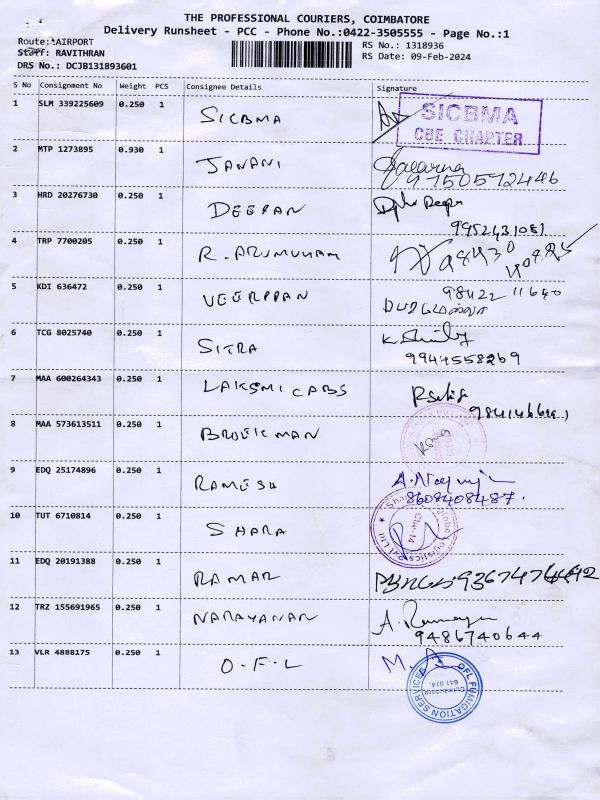 THE PROFESSIONAL COURIERS, COIMBATORE
Delivery Runsheet - PCC - Phone No.:0422-3505555 - Page No.:1
Route: AIRPORT
Staff: RAVITHRAN
DRS No.: DCJB131893601
RS No.: 1318936
RS Date: 09-Feb-2024
S No Consignment No Weight PCS Consignee Details Signature
1 SLM 339225609 0.250 1 SICBMA
SICBMA
CBE CHAPTER
2 MTP 1273895 0.930 1 JANANI
9750572446
3 HRD 20276730 0.250 1 DEEPAN
9952431081
4 TRP 7700205 0.250 1 R. ARUMUHAM
5 KDI 636472 0.250 1 VEERPPAN
98422 11640
6 TCG 8025740 0.250 1 SITRA
9944558269
7 MAA 600264343 0.250 1 LAKSMI CABS
8 MAA 573613511 0.250 1 BROEKMAN
9 EDQ 25174896 0.250 1 RAMESH
8608408487.
10 TUT 6710814 0.250 1 SHARA
11 EDQ 20191388 0.250 1 RAMAR
12 TRZ 155691965 0.250 1 NARAYANAN
9486740644
13 VLR 4888175 0.250 1 O.F.L
OFL FUMIGATION SERVICES
Coimbatore
641 014.